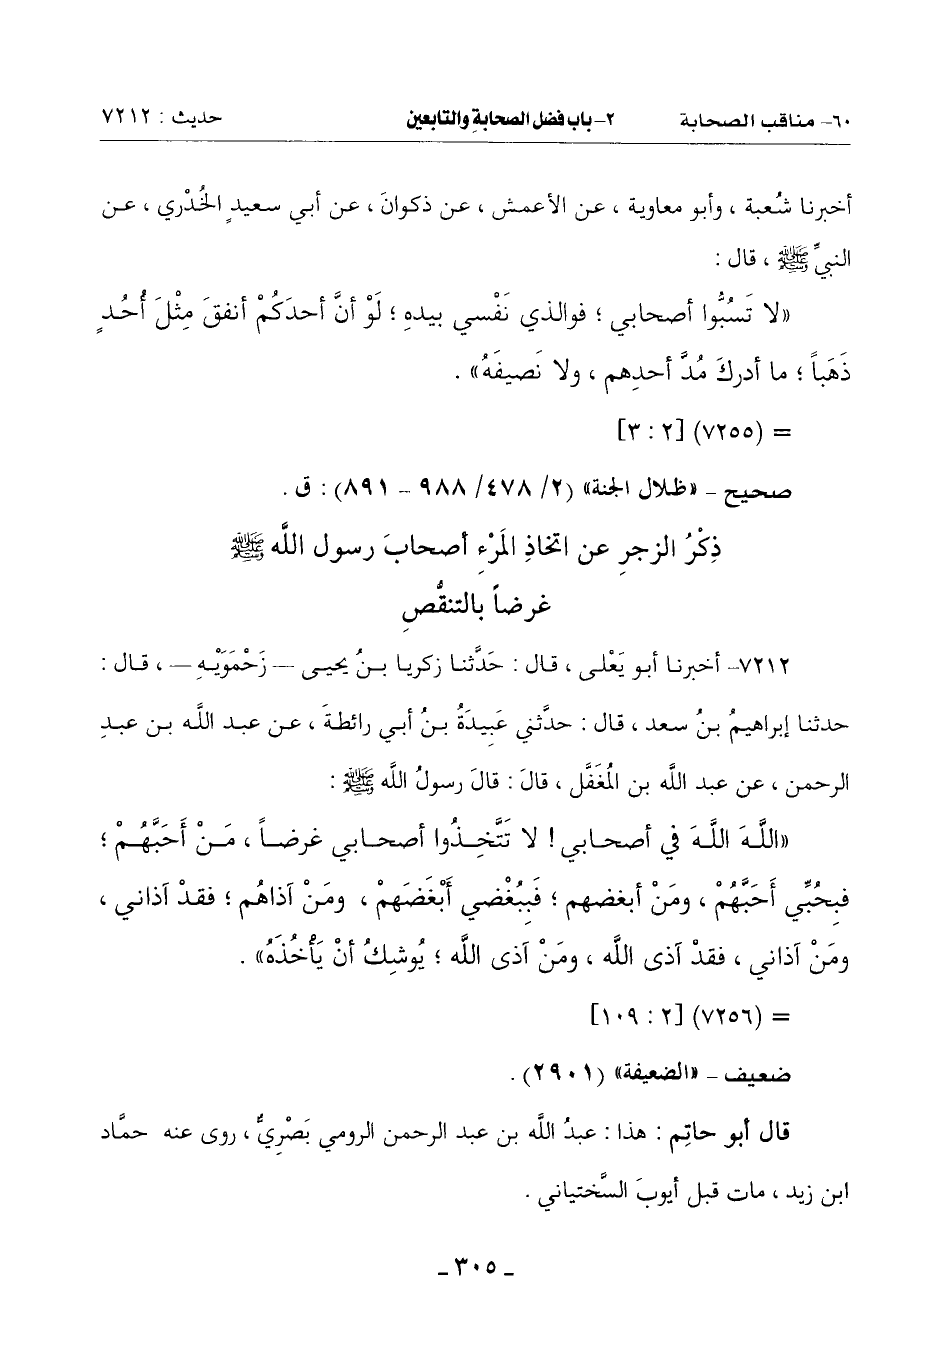 ٦٠- مناقب الصحابة ٢- باب فضل الصحابة والتابعين حديث : ٧٢١٢
أخبرنا شُعبة ، وأبو معاوية ، عن الأعمش ، عن ذكوانَ ، عن أبي سعيدٍ الخُدْري ، عن
النبيِّ ﷺ ، قال :
«لا تَسُبُّوا أصحابي ؛ فوالذي نَفْسي بيدهِ ؛ لَوْ أنَّ أحدَكُمْ أنفقَ مِثْلَ أُحُدٍ
ذَهَباً ؛ ما أدركَ مُدَّ أحدِهم ، ولا نَصيفَهُ» .
= (٧٢٥٥) [٢ : ٣]
صحيح - «ظلال الجنة» (٢/ ٤٧٨/ ٩٨٨ - ٨٩١) : ق .
ذِكْرُ الزجرِ عن اتخاذِ المَرْءِ أصحابَ رسول اللَّه ﷺ
غرضاً بالتنقُّصِ
٧٢١٢- أخبرنا أبو يَعْلى ، قال : حَدَّثنا زكريا بنُ يحيى – زَحْمَوَيْهِ – ، قال :
حدثنا إبراهيمُ بنُ سعد ، قال : حدَّثني عَبِيدَةُ بنُ أبي رائطةَ ، عن عبد اللَّه بن عبدِ
الرحمن ، عن عبد اللَّه بن المُغَفَّل ، قالَ : قالَ رسولُ اللَّه ﷺ :
«اللَّهَ اللَّهَ في أصحابي! لا تَتَّخِذُوا أصحابي غرضاً ، مَنْ أَحَبَّهُمْ ؛
فبِحُبِّي أَحَبَّهُمْ ، ومَنْ أبغضهم ؛ فَبِبُغْضي أَبْغَضَهمْ ، ومَنْ آذاهُم ؛ فقدْ آذاني ،
ومَنْ آذاني ، فقدْ آذى اللَّه ، ومَنْ آذى اللَّه ؛ يُوشِكُ أنْ يَأْخُذَهُ» .
= (٧٢٥٦) [٢ : ١٠٩]
ضعيف - «الضعيفة» (٢٩٠١) .
قال أبو حاتِم : هذا : عبدُ اللَّه بن عبد الرحمن الرومي بَصْرِيٌّ ، روى عنه حمَّاد
ابن زيد ، مات قبل أيوبَ السَّختياني .
- ٣٠٥ -